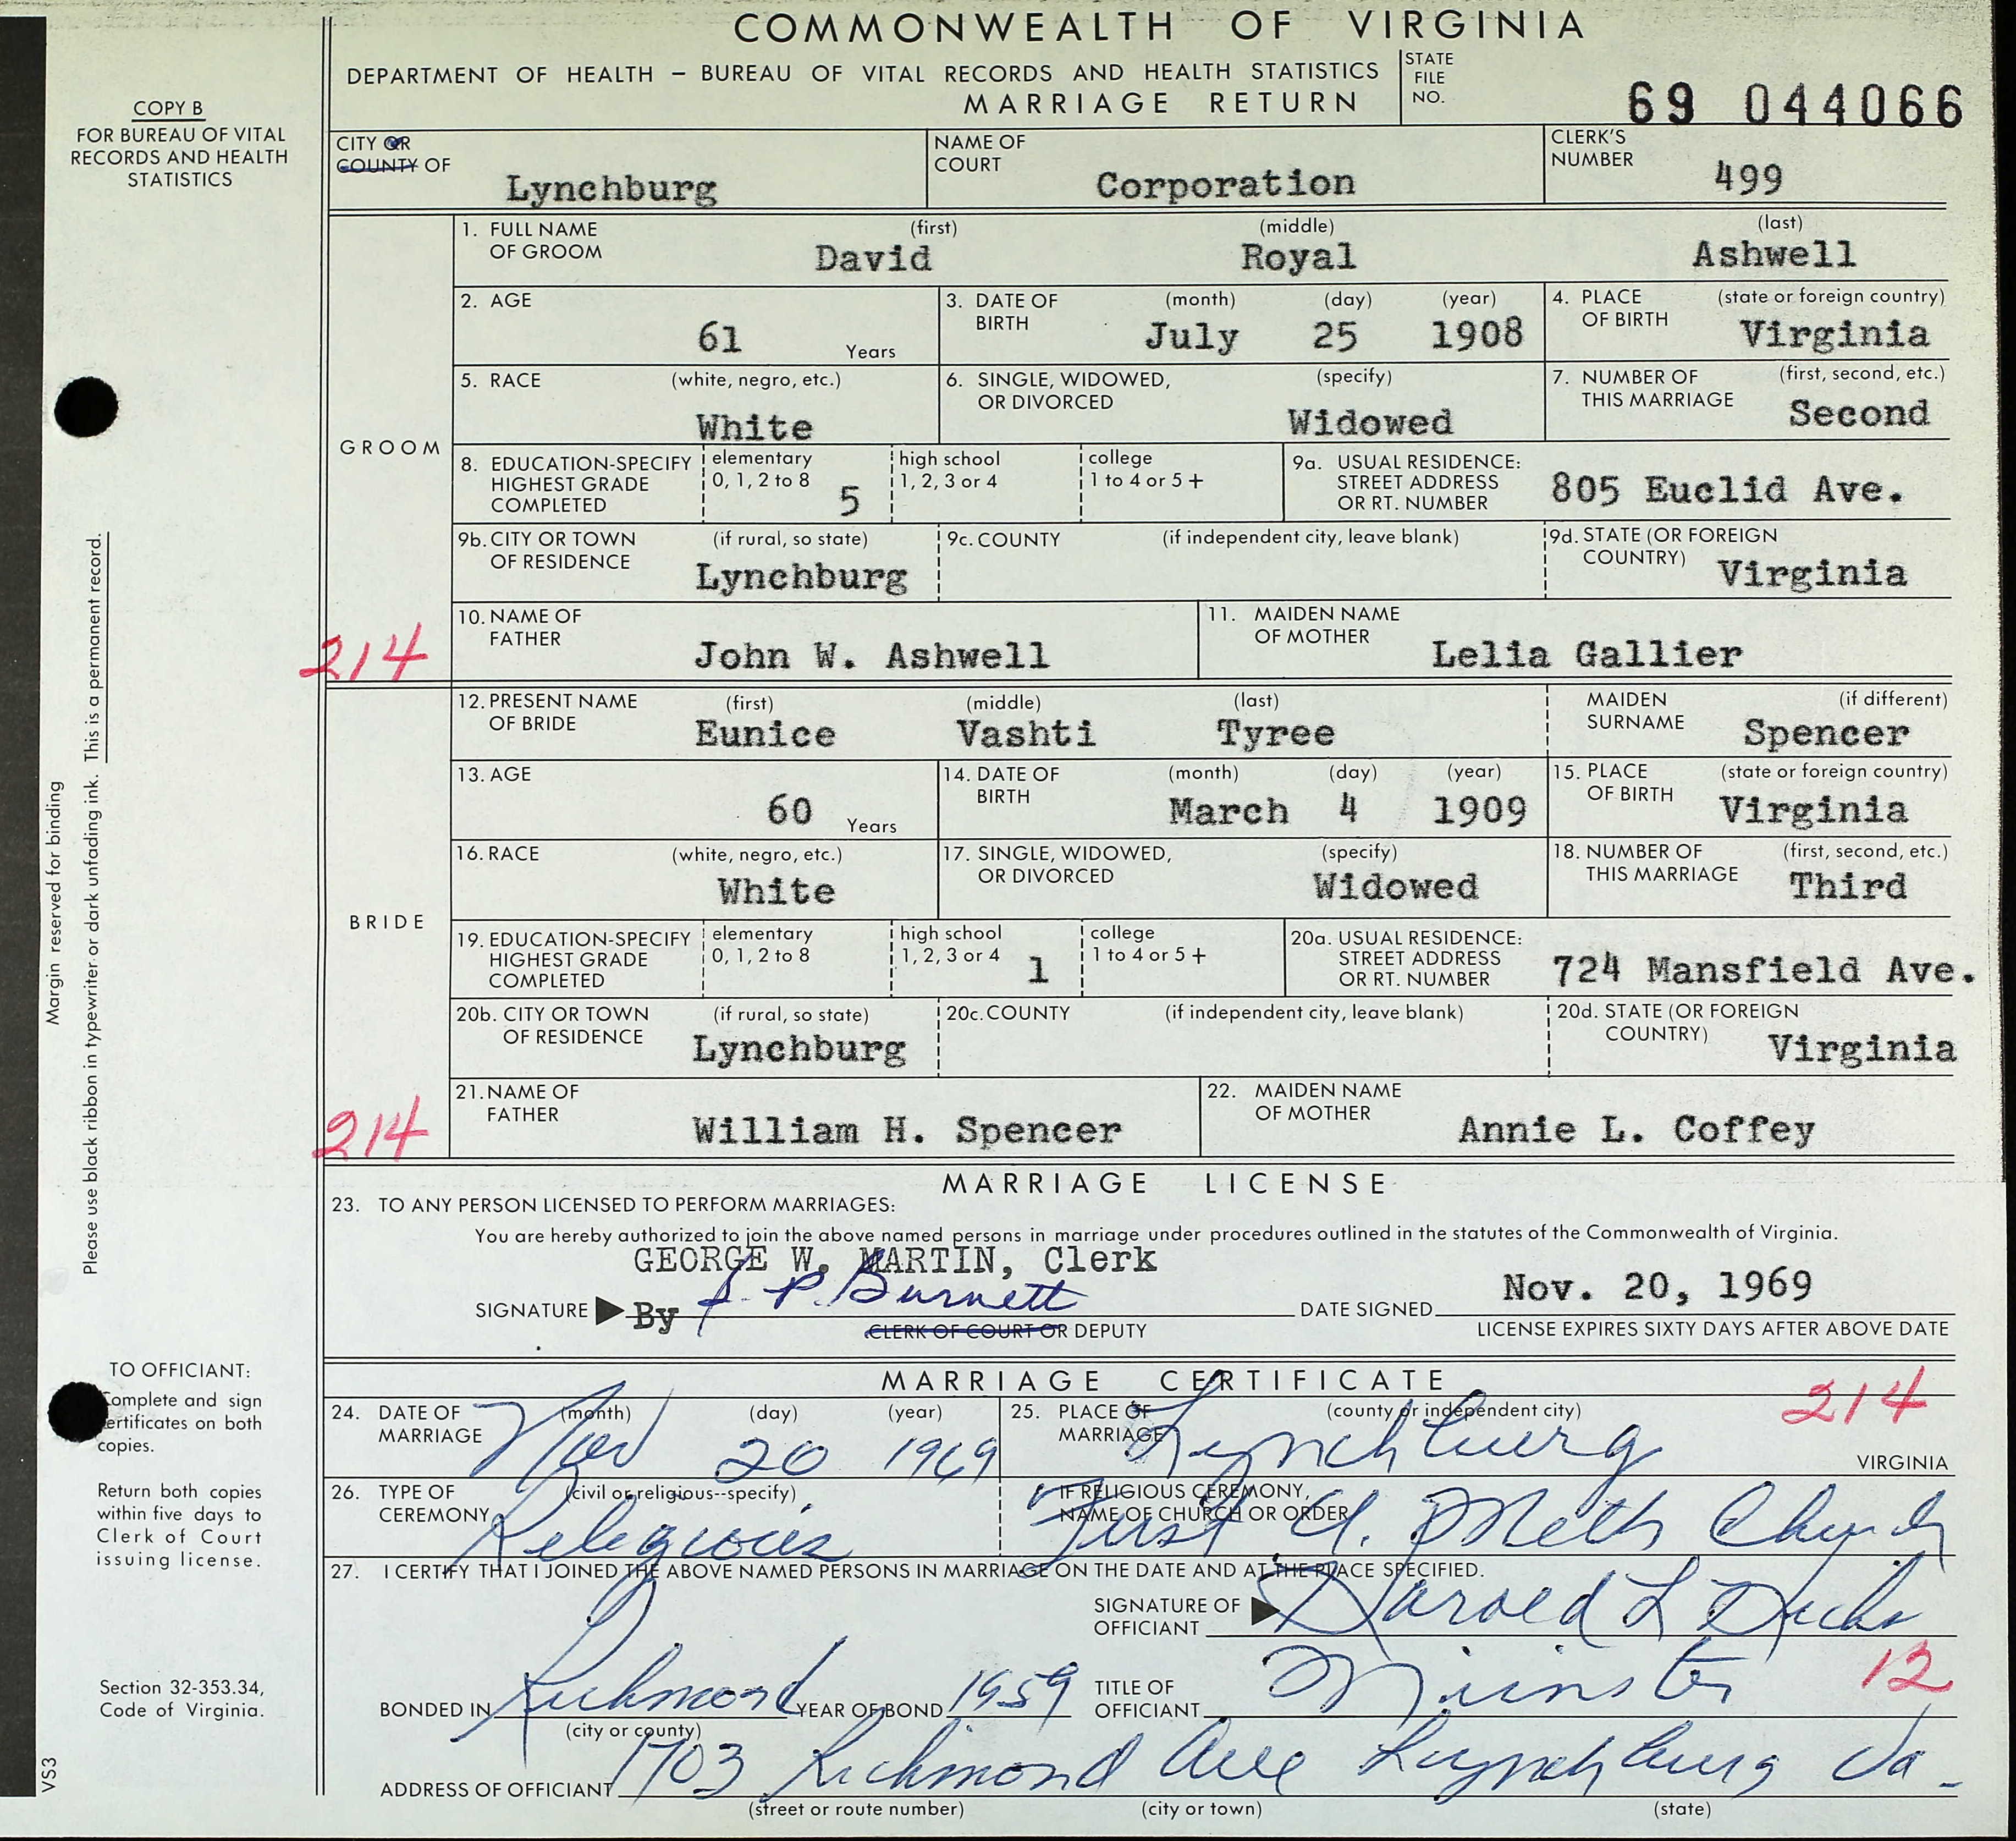 COMMONWEALTH OF VIRGINIA
DEPARTMENT OF HEALTH – BUREAU OF VITAL RECORDS AND HEALTH STATISTICS
MARRIAGE RETURN
STATE FILE NO. 69 044066
COPY B
FOR BUREAU OF VITAL
RECORDS AND HEALTH
STATISTICS
CITY OR COUNTY OF Lynchburg
NAME OF COURT Corporation
CLERK'S NUMBER 499
GROOM
1. FULL NAME OF GROOM (first) David (middle) Royal (last) Ashwell
2. AGE 61 Years
3. DATE OF BIRTH (month) July (day) 25 (year) 1908
4. PLACE OF BIRTH (state or foreign country) Virginia
5. RACE (white, negro, etc.) White
6. SINGLE, WIDOWED, OR DIVORCED (specify) Widowed
7. NUMBER OF THIS MARRIAGE (first, second, etc.) Second
8. EDUCATION-SPECIFY HIGHEST GRADE COMPLETED elementary 0, 1, 2 to 8 5 high school 1, 2, 3 or 4 college 1 to 4 or 5+
9a. USUAL RESIDENCE: STREET ADDRESS OR RT. NUMBER 805 Euclid Ave.
9b. CITY OR TOWN OF RESIDENCE (if rural, so state) Lynchburg
9c. COUNTY (if independent city, leave blank)
9d. STATE (OR FOREIGN COUNTRY) Virginia
10. NAME OF FATHER John W. Ashwell
11. MAIDEN NAME OF MOTHER Lelia Gallier
214
BRIDE
12. PRESENT NAME OF BRIDE (first) Eunice (middle) Vashti (last) Tyree
MAIDEN SURNAME (if different) Spencer
13. AGE 60 Years
14. DATE OF BIRTH (month) March (day) 4 (year) 1909
15. PLACE OF BIRTH (state or foreign country) Virginia
16. RACE (white, negro, etc.) White
17. SINGLE, WIDOWED, OR DIVORCED (specify) Widowed
18. NUMBER OF THIS MARRIAGE (first, second, etc.) Third
19. EDUCATION-SPECIFY HIGHEST GRADE COMPLETED elementary 0, 1, 2 to 8 high school 1, 2, 3 or 4 1 college 1 to 4 or 5+
20a. USUAL RESIDENCE: STREET ADDRESS OR RT. NUMBER 724 Mansfield Ave.
20b. CITY OR TOWN OF RESIDENCE (if rural, so state) Lynchburg
20c. COUNTY (if independent city, leave blank)
20d. STATE (OR FOREIGN COUNTRY) Virginia
21. NAME OF FATHER William H. Spencer
22. MAIDEN NAME OF MOTHER Annie L. Coffey
214
Margin reserved for binding
Please use black ribbon in typewriter or dark unfading ink. This is a permanent record.
MARRIAGE LICENSE
23. TO ANY PERSON LICENSED TO PERFORM MARRIAGES:
You are hereby authorized to join the above named persons in marriage under procedures outlined in the statutes of the Commonwealth of Virginia.
GEORGE W. MARTIN, Clerk
SIGNATURE By P. Burnett
CLERK OF COURT OR DEPUTY
DATE SIGNED Nov. 20, 1969
LICENSE EXPIRES SIXTY DAYS AFTER ABOVE DATE
MARRIAGE CERTIFICATE
214
24. DATE OF MARRIAGE (month) Nov (day) 20 (year) 1969
25. PLACE OF MARRIAGE (county or independent city) Lynchburg VIRGINIA
26. TYPE OF CEREMONY (civil or religious--specify) Religious
IF RELIGIOUS CEREMONY, NAME OF CHURCH OR ORDER First U. Meth Church
27. I CERTIFY THAT I JOINED THE ABOVE NAMED PERSONS IN MARRIAGE ON THE DATE AND AT THE PLACE SPECIFIED.
SIGNATURE OF OFFICIANT Harold L
BONDED IN Richmond (city or county) YEAR OF BOND 1959
TITLE OF OFFICIANT Minister
12
ADDRESS OF OFFICIANT 1703 Richmond Ave Lynchburg Va.
(street or route number) (city or town) (state)
TO OFFICIANT:
Complete and sign
certificates on both
copies.
Return both copies
within five days to
Clerk of Court
issuing license.
Section 32-353.34,
Code of Virginia.
VS3